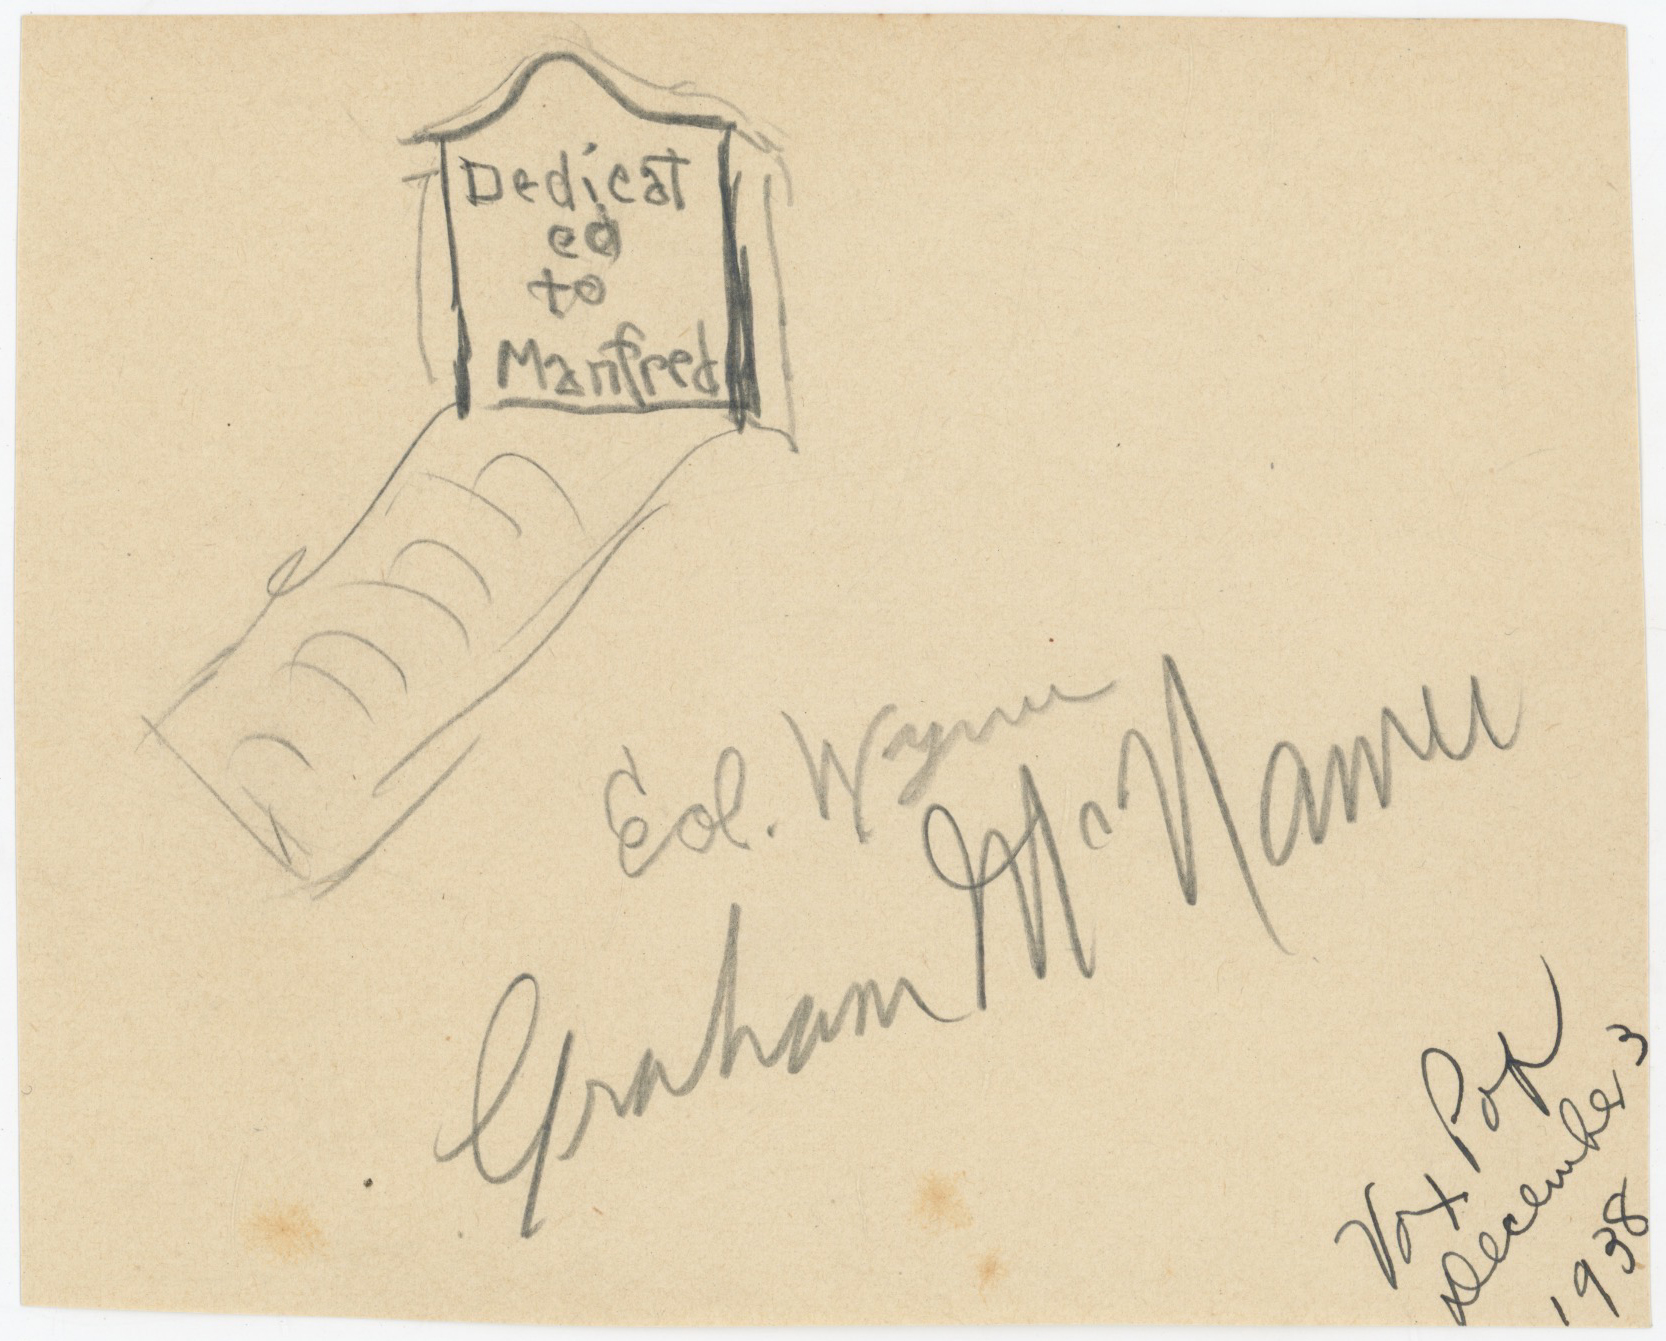 Dedicat
ed
to
Manfred
Ed. Wynn
Graham McNamee
Vox Pop
December 3
1938